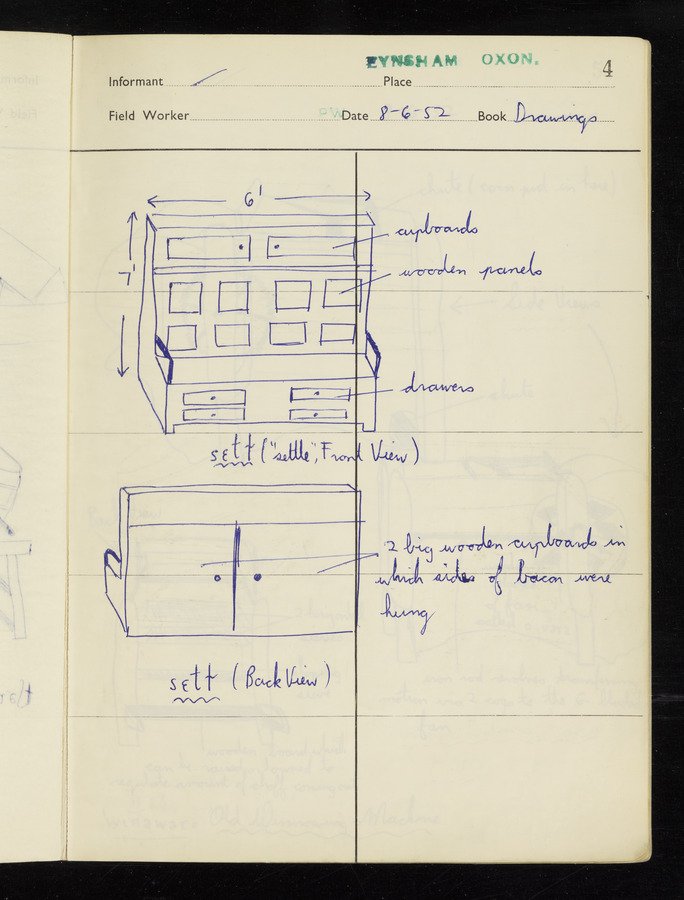 EYNSHAM OXON.
4
Informant
Place
Field Worker
PW
Date 8-6-52
Book Drawings
6'
7'
cupboards
wooden panels
drawers
sett ("settle", Front View)
2 big wooden cupboards in
which sides of bacon were
hung
sett (Back View)